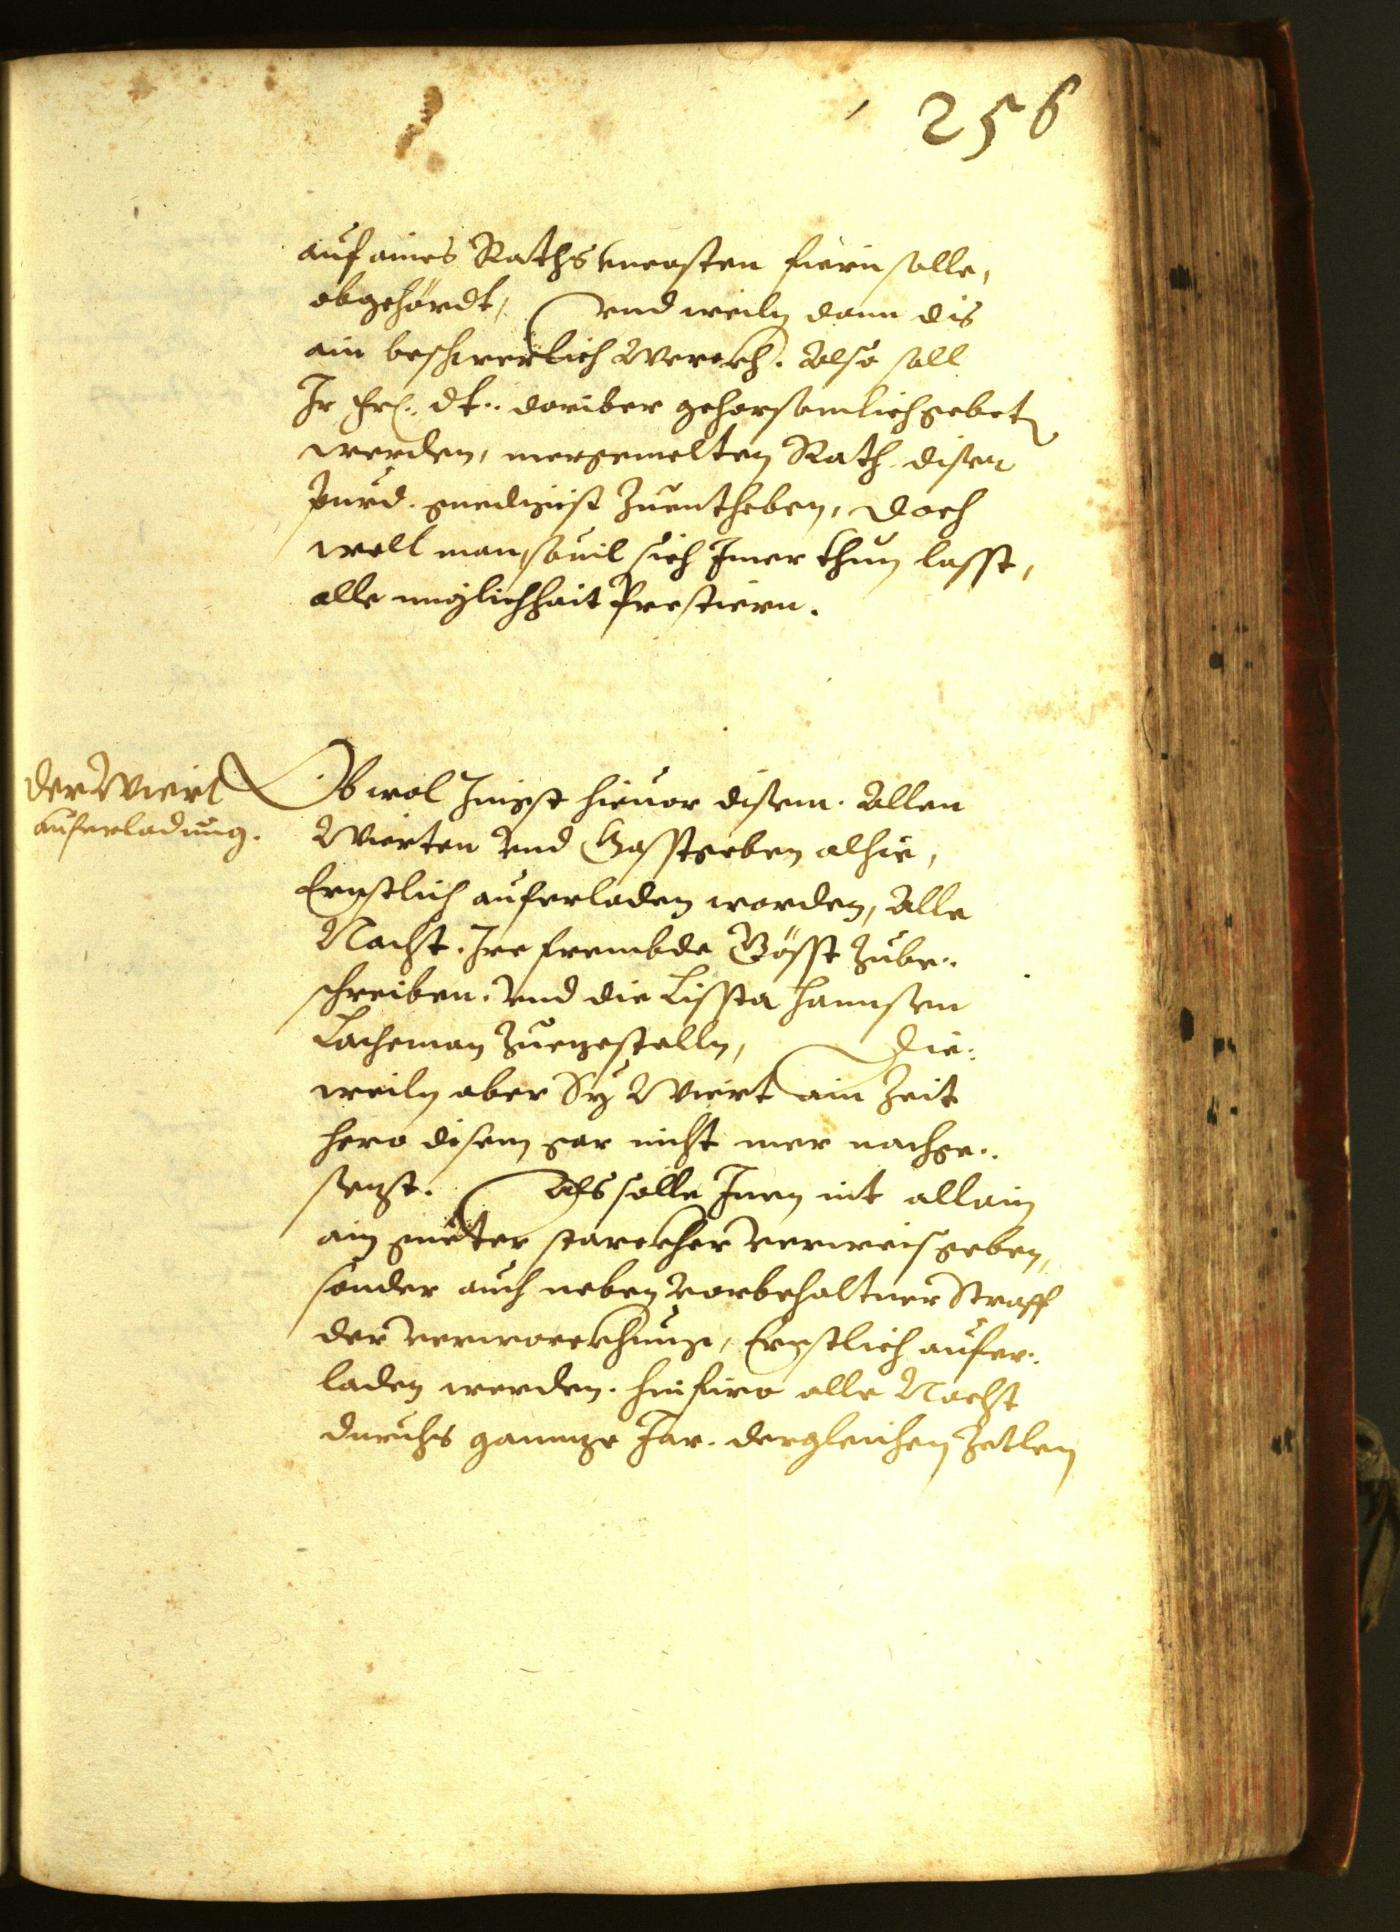 256
auf aines Raths uncosten fiern solle,
abgehördt, vnd weiln dann dis
ain beschwerlich Werckh. Also soll
Ir Frl. Dt. dariber gehorsamlich gebet
werden, mergemelten Rath diser
Purd. genedigist zuentheben, Doch
well man, souil sich Imer thun lasst,
alle miglichhait Prestiern.
Der Wiert
auferladung.
Ob wol Jingst hieuor disem. Allen
Wierten vnd Gasstgeben alhie,
Ernstlich auferladen worden, Alle
Nacht. Ire frembde Gösst zube-
schreiben. vnd die Lissta Hannsen
Lacheman zuegestelln, Die-
weiln aber Sy Wiert ain Zeit
hero disem gar nicht mer nachge-
setzt. Als solle Inen nit allain
ain gueter starckher verweis geben,
sonder auch neben vorbehaltner Straff
der verworckhung, Ernstlich aufer-
laden werden. hinfiro alle Nacht
durchs gannze Jar. dergleichen Zetlen